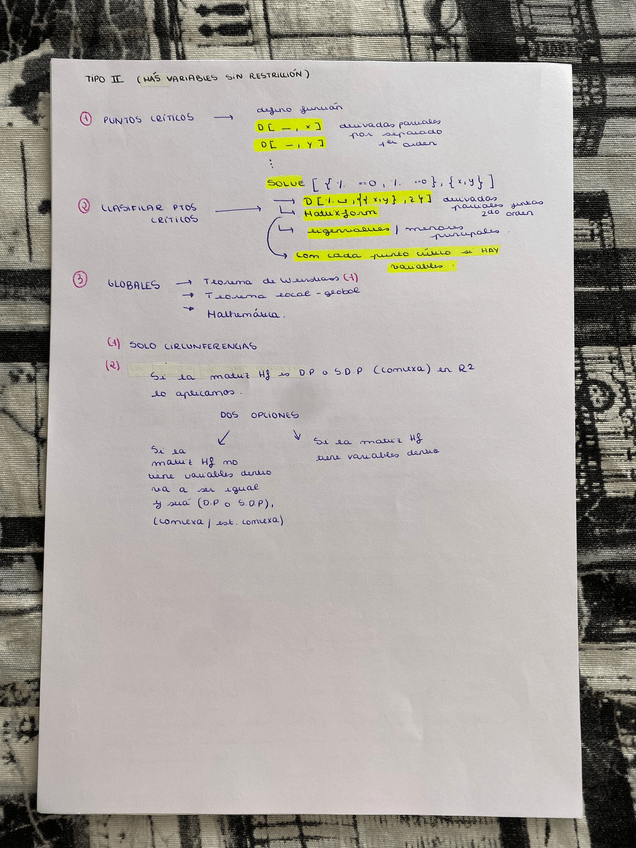 TIPO II (MÁS VARIABLES SIN RESTRICCIÓN)
① PUNTOS CRÍTICOS → defino función
D[ — , x ] derivadas parciales
D[ — , y ] por separado
1er orden
⋮
SOLVE [ { % ==0 , % ==0 } , { x, y } ]
② CLASIFICAR PTOS CRÍTICOS → D [ % , { { x, y } , 2 } ] derivadas parciales juntas 2do orden
Matrixform
eigenvalues / menores principales.
Con cada punto crítico si HAY
variables.
③ GLOBALES → Teorema de Weierstrass (1)
→ Teorema local - global
→ Mathemática.
(1) SOLO CIRCUNFERENCIAS
(2)
Si la matriz Hf es D.P o S.D.P (convexa) en R2
lo aplicamos.
DOS OPCIONES
Si la
matriz Hf no
tiene variables dentro
va a ser igual
y será (D.P o S.D.P),
(convexa / est. convexa)
Si la matriz Hf
tiene variables dentro